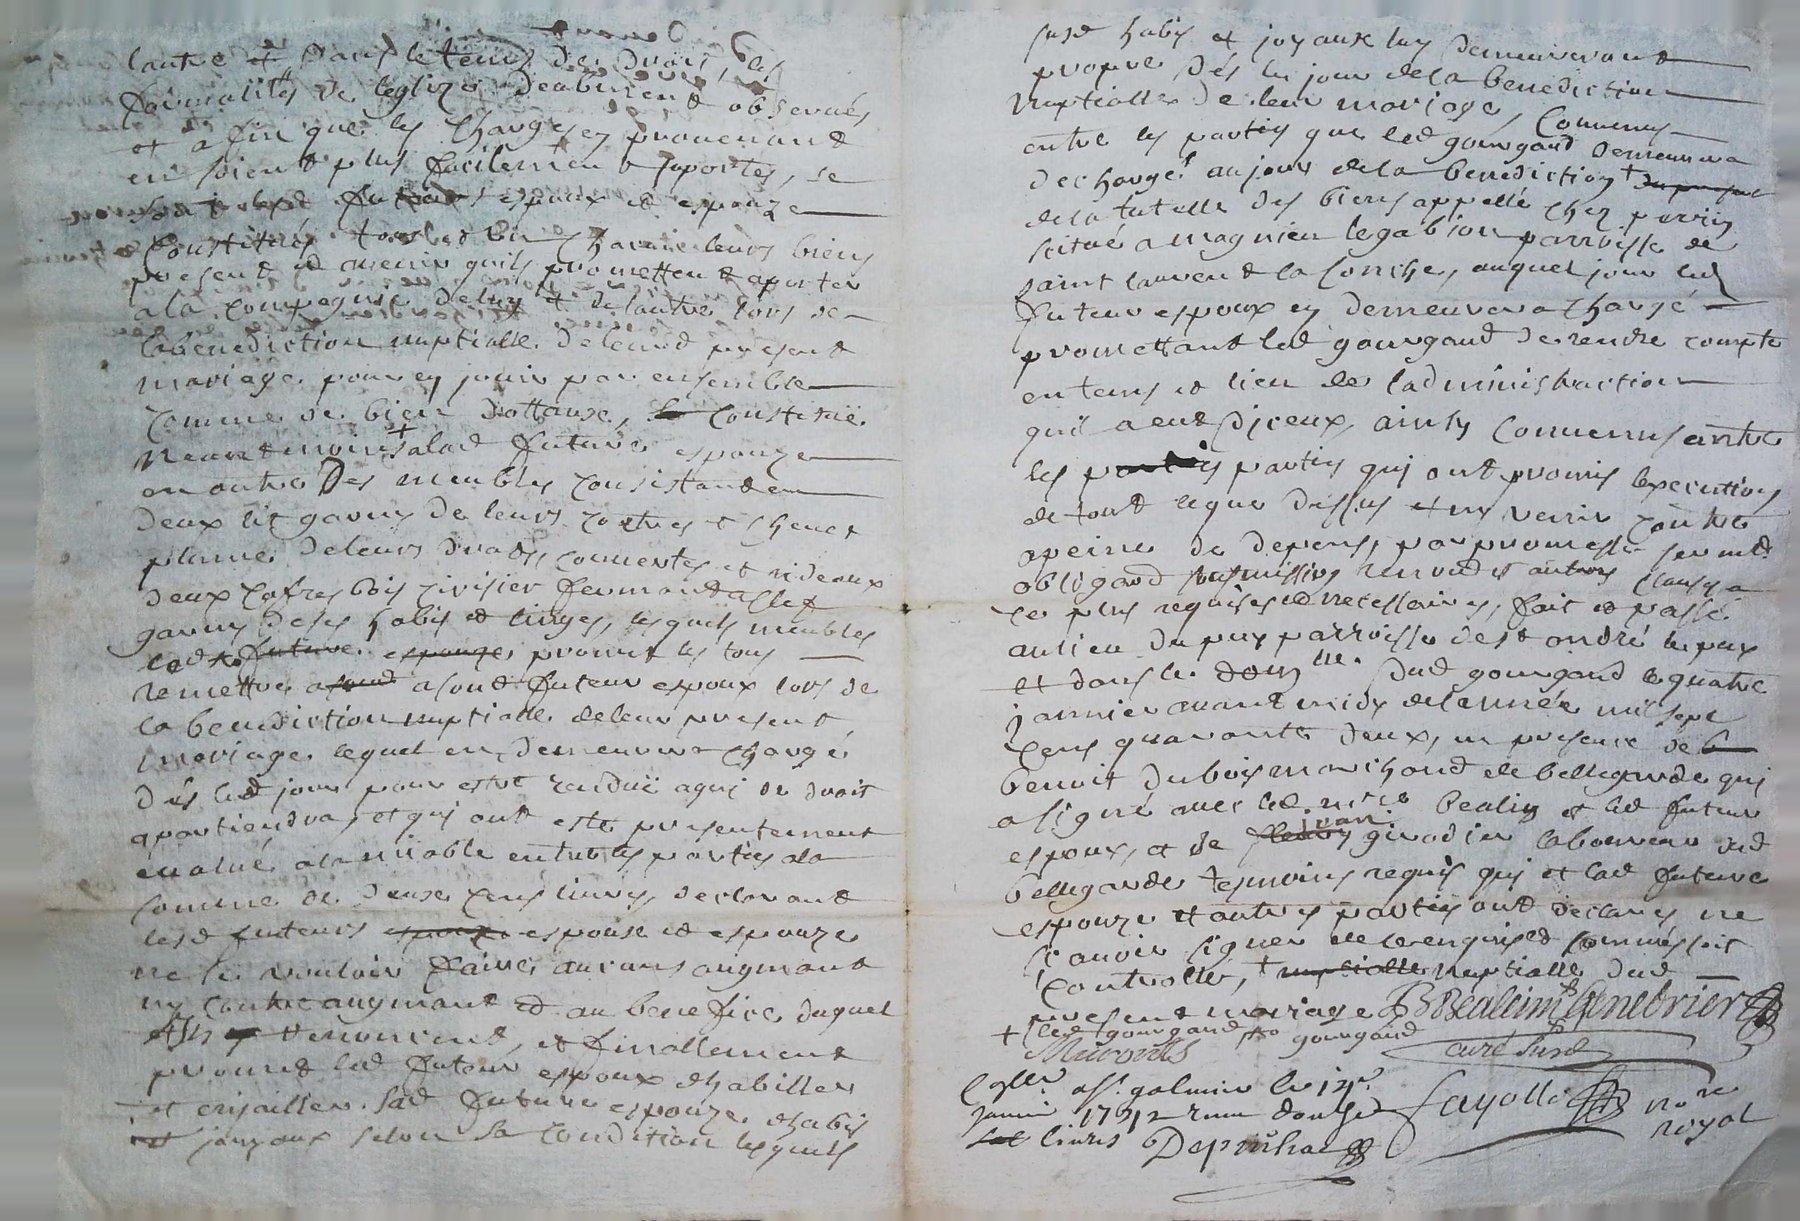 lautre et dans le tems de droit, les
formalités de leglize deabment observés
et afin que les charges en provenant
en soient plus facilement suportés, se
sont lesd futurs espoux et espouze
constitués tous et un chacun leurs biens
present et avenir quils promettent aporter
a la compagnie de lun et de lautre lors de
la benediction nuptialle de leurd present
mariage pour en jouir par ensemble
comme de bien dottaux, constitué
neantmoins a lad future espouze
en outre Des meubles consistant en
deux lit garny de leurs coetres et chevet
plume de leurs drads, couvertes et rideaux
deux cofres bois cerisier fermant a clef
garny de ses habis et linges, lesquels meubles
led future espouze promet les tous
remettre asond a sond futeur espoux lors de
la benediction nuptialle de leur present
mariage lequel en demeurera chargé
dés led jour pour estre rendüe a qui de droit
apartiendra, et qui ont esté presentement
evalué a lamiable entre les parties a la
somme de deux cens livres, declarant
lesd futeurs espoux espoux et espouze
ne se vouloir faire aucuns augmant
ny contre augmant et au benefice duquel
ils y renoncent, et finallement
promet led futeur espoux dhabiller
et enjoailler sad future espouze dhabis
et joyaux selon sa condition lesquels
susd habis et joyaux luy demeureront
propre dés le jour de la benediction
nuptialle de leur mariage, Convenu
entre les parties que led gourgaud demeurera
dechargé au jour de la benediction + du present
de la tutelle des biens appellé chez perrin
scitué a magnieu le gabion parroisse de
saint laurent la conche, auquel jour led
futeur espoux en demeurera chargé
promettant led gourgaud de rendre compte
en tems et lieu de ladministraction
quil a eut diceux, ainsy convenus entre
les parties parties qui ont promis lexecution
de tout ceque dessus et ny venir contre
a peine de depens, par promesse serment
obligaōn soumission renonc et autres clauses a
ce plus requises et necessaires, fait et passé
au lieu du puy parroisse de st andré le puy
et dans le domlle dud gourgaud le quatre
janvier avant midy de lannée mil sept
cens quarante deux, en presence de
benoit dubois marchand de bellegarde qui
a signé avec led mre bealin et led futeur
espoux, et de jean girodier laboureur dud
bellegarde tesmoins requis qui et lad future
espouze et autres parties ont declarés ne
scavoir signer de ce enquis et sommés soit
controllé, + nuptialle nuptialle dud
present mariage BBealem Genebrier
+ led gourgaud gourgaud
curé susd
Collé a st galmier le 14e
janvier 1742 reçu douze
sol livres Depinhac
fayolle nore
royal